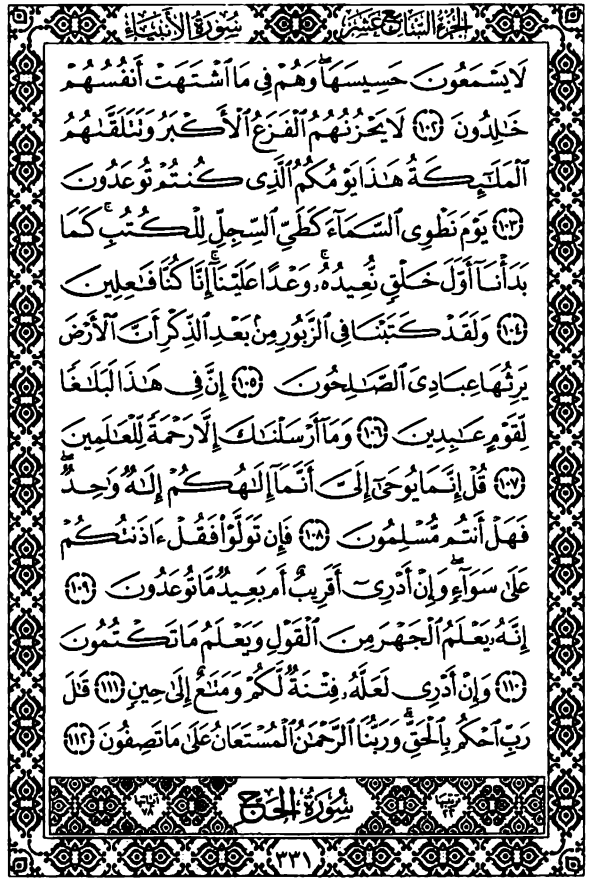 الجزء السابع عشر سورة الأنبياء
لَا يَسْمَعُونَ حَسِيسَهَا ۖ وَهُمْ فِي مَا ٱشْتَهَتْ أَنفُسُهُمْ
خَٰلِدُونَ ١٠٢ لَا يَحْزُنُهُمُ ٱلْفَزَعُ ٱلْأَكْبَرُ وَتَتَلَقَّىٰهُمُ
ٱلْمَلَٰٓئِكَةُ هَٰذَا يَوْمُكُمُ ٱلَّذِي كُنتُمْ تُوعَدُونَ
١٠٣ يَوْمَ نَطْوِي ٱلسَّمَآءَ كَطَيِّ ٱلسِّجِلِّ لِلْكُتُبِ ۚ كَمَا
بَدَأْنَآ أَوَّلَ خَلْقٍ نُّعِيدُهُۥ ۚ وَعْدًا عَلَيْنَآ ۚ إِنَّا كُنَّا فَٰعِلِينَ
١٠٤ وَلَقَدْ كَتَبْنَا فِي ٱلزَّبُورِ مِنۢ بَعْدِ ٱلذِّكْرِ أَنَّ ٱلْأَرْضَ
يَرِثُهَا عِبَادِيَ ٱلصَّٰلِحُونَ ١٠٥ إِنَّ فِي هَٰذَا لَبَلَٰغًا
لِّقَوْمٍ عَٰبِدِينَ ١٠٦ وَمَآ أَرْسَلْنَٰكَ إِلَّا رَحْمَةً لِّلْعَٰلَمِينَ
١٠٧ قُلْ إِنَّمَا يُوحَىٰٓ إِلَيَّ أَنَّمَآ إِلَٰهُكُمْ إِلَٰهٌ وَٰحِدٌ ۖ
فَهَلْ أَنتُم مُّسْلِمُونَ ١٠٨ فَإِن تَوَلَّوْا۟ فَقُلْ ءَاذَنتُكُمْ
عَلَىٰ سَوَآءٍ ۖ وَإِنْ أَدْرِيٓ أَقَرِيبٌ أَم بَعِيدٌ مَّا تُوعَدُونَ ١٠٩
إِنَّهُۥ يَعْلَمُ ٱلْجَهْرَ مِنَ ٱلْقَوْلِ وَيَعْلَمُ مَا تَكْتُمُونَ
١١٠ وَإِنْ أَدْرِي لَعَلَّهُۥ فِتْنَةٌ لَّكُمْ وَمَتَٰعٌ إِلَىٰ حِينٍ ١١١ قَٰلَ
رَبِّ ٱحْكُم بِٱلْحَقِّ ۗ وَرَبُّنَا ٱلرَّحْمَٰنُ ٱلْمُسْتَعَانُ عَلَىٰ مَا تَصِفُونَ ١١٢
ترتيبها ٢٢ سُورَةُ الحَجِّ آياتها ٧٨
٣٣١